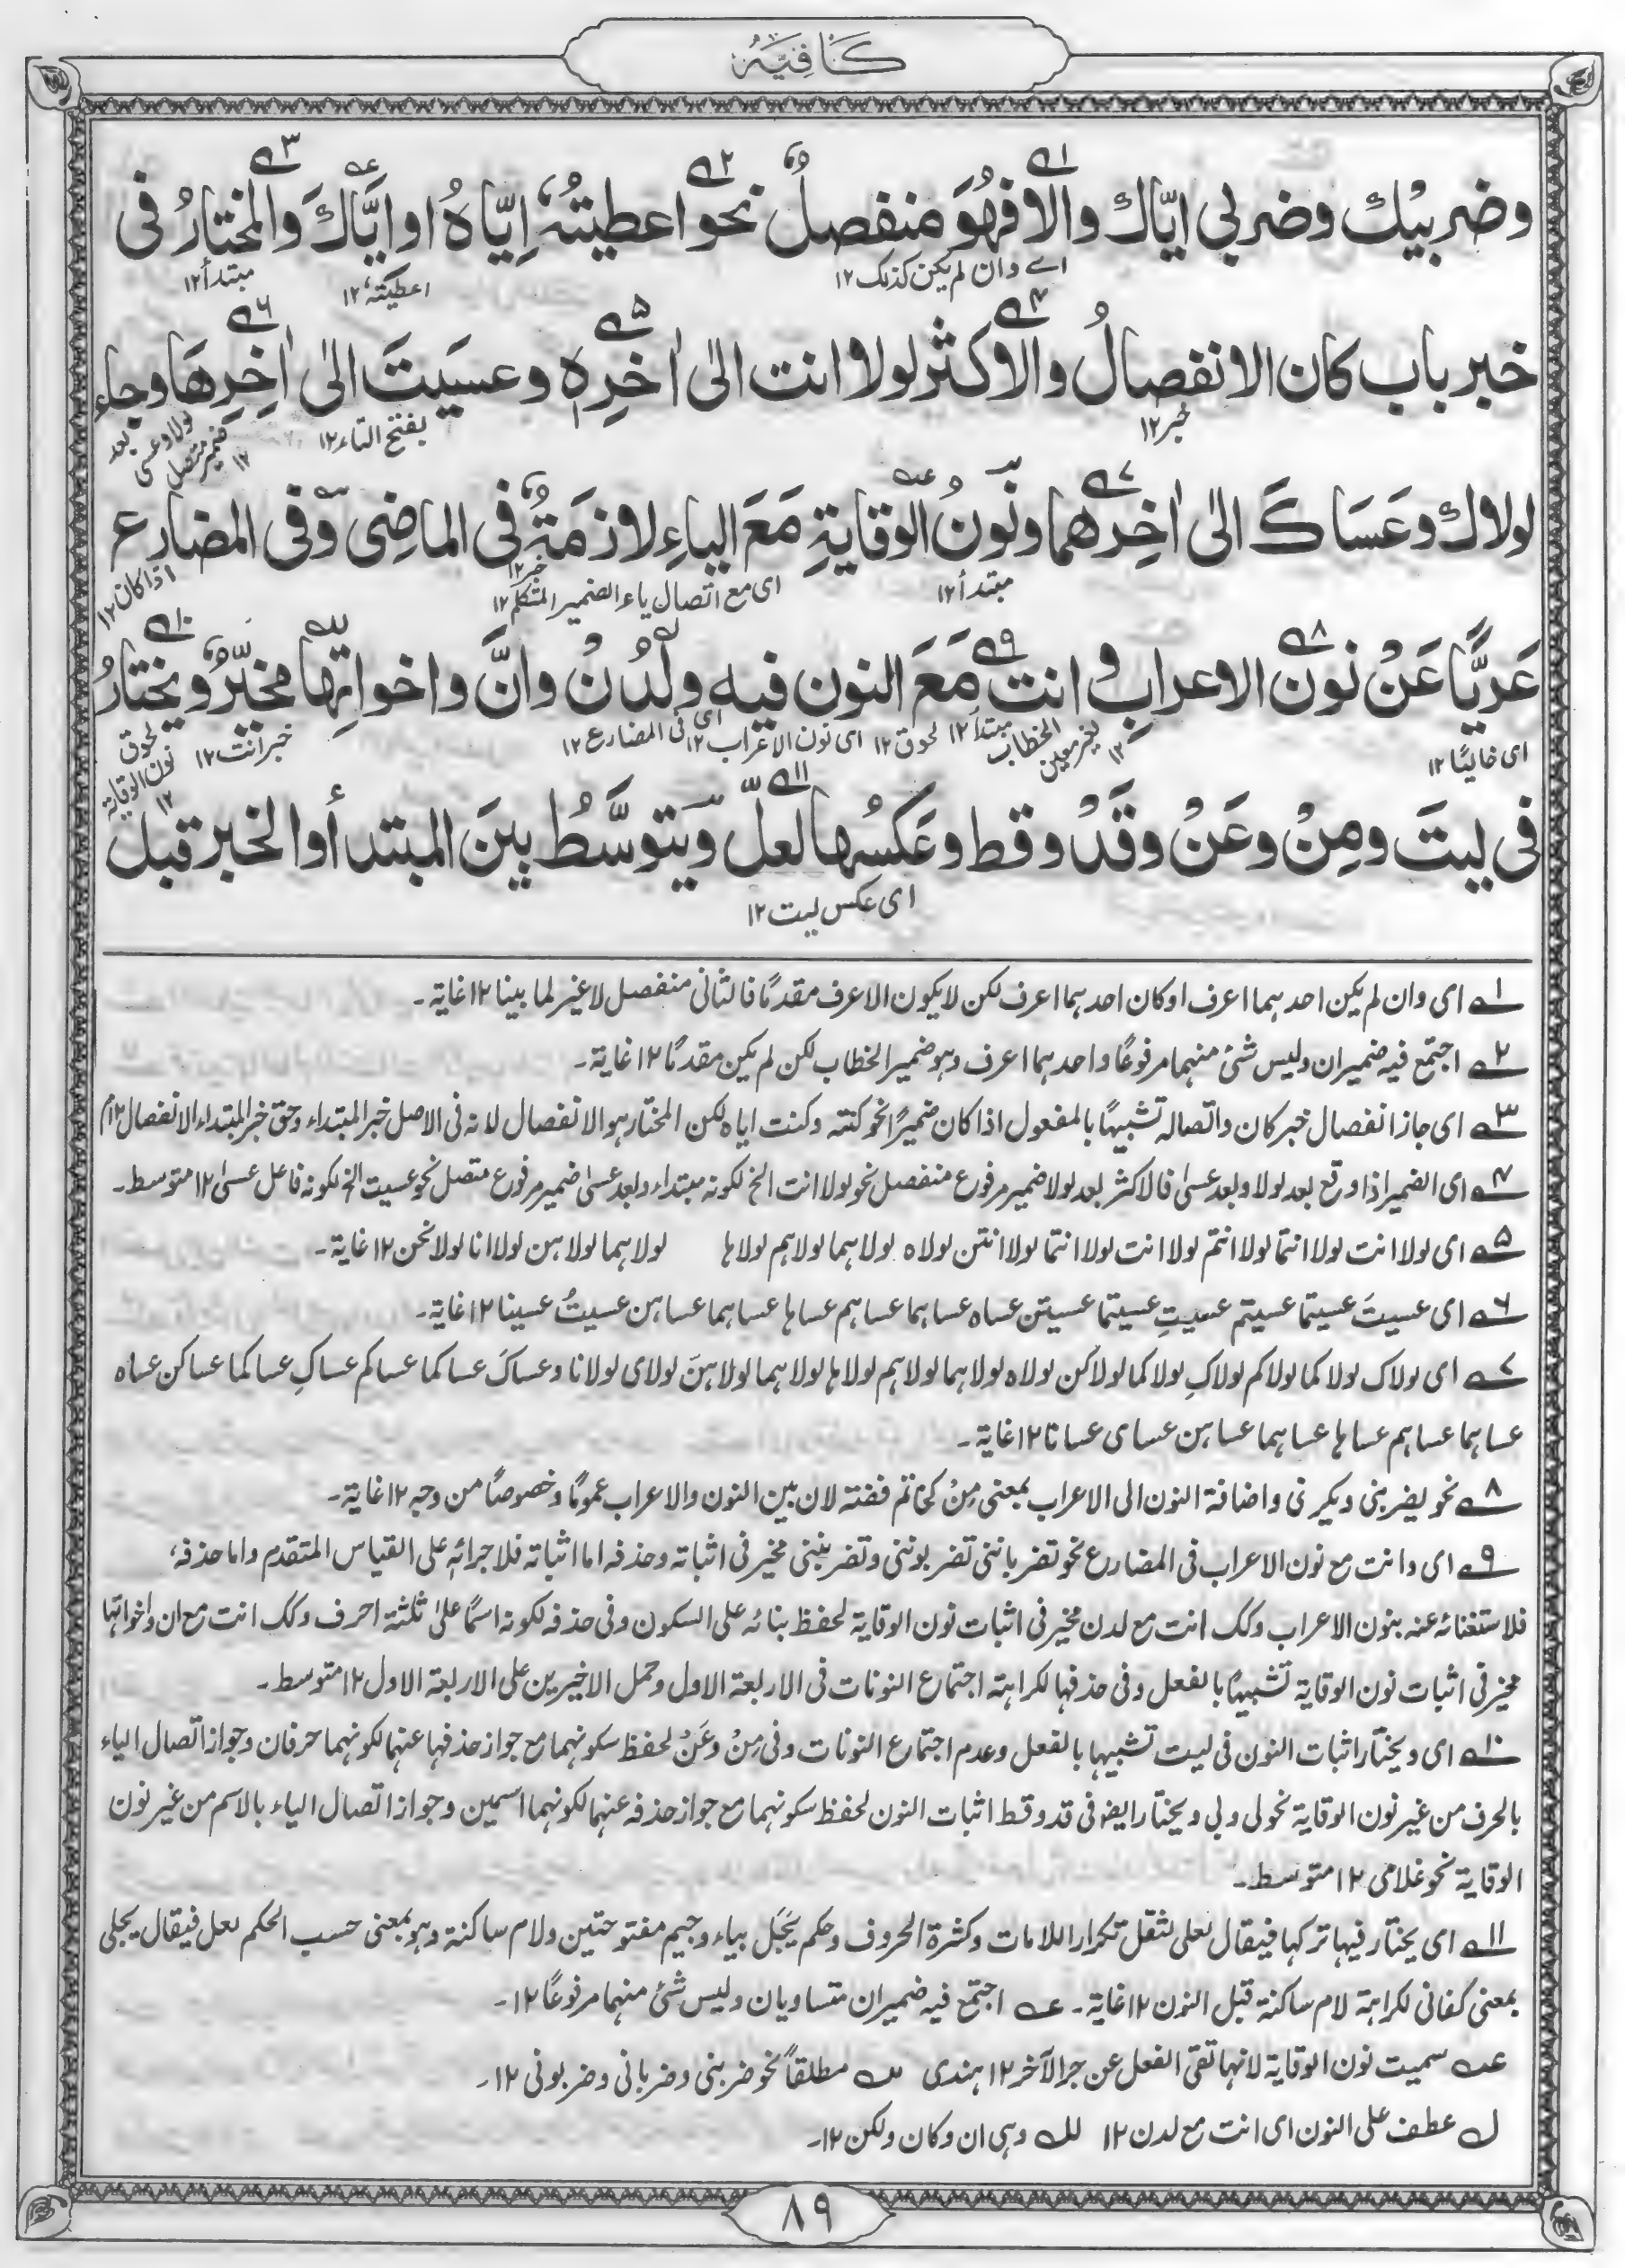 كَافِيَه
وضربيْك وضربي ايّاك والا فهُوَ منفصلٌ نحو اعطيتُهٗ اِيّاهُ او ايَّاكَ والمختارُ فى
اے وان لم يكن كذلك ١٢
اعطيتهٗ ١٢
مبتدأ ١٢
خبر باب كان الانفصالُ والاكثر لولا انت الىٰ اٰخرِهٖ وعسيَتَ الىٰ اٰخِرِهَا وجاء
خبر ١٢
بفتح التاء ١٢
بعد لولا وعسى ضمير متصل ١٢
لولاك وعَسَاكَ الىٰ اٰخِرِهما ونُونُ الوقايةِ مَعَ الياءِ لازمَةٌ فى الماضِى وفى المضارع
مبتدأ ١٢
خبر ١٢
اى مع اتصال ياء الضمير المتكلم ١٢
اذا كان ١٢
عَرِيًّا عَنْ نون الاعرابِ وانت مَعَ النون فيه ولَدُنْ وانَّ واخواتِها مخيّرٌ ويختارُ
اى خاليًا ١٢
الخطاب ١٢
مبتدأ ١٢
لحوق ١٢
اى نون الاعراب ١٢
اى فى المضارع ١٢
خبر انت ١٢
لحوق نون الوقاية ١٢
فى ليتَ ومِنْ وعَنْ وقَدْ وقط وعَكسُها لعلّ ويتوسَّطُ بينَ المبتدأ والخبر قبل
اى عكس ليت ١٢
١ اى وان لم يكن احدهما اعرف او كان احدهما اعرف لكن لا يكون الاعرف مقدمًا فالثانى منفصل لا غير لما بينا ١٢ غاية۔
٢ اجتمع فيه ضميران وليس شئ منهما مرفوعًا واحدهما اعرف وهو ضمير الخطاب لكن لم يكن مقدمًا ١٢ غاية۔
٣ اى جاز انفصال خبر كان واتصاله تشبيهًا بالمفعول اذا كان ضميرًا نحو كنته وكنت اياه لكن المختار هو الانفصال لانه فى الاصل خبر المبتداء وحق خبر المبتداء الانفصال ١٢م
٤ اى الضمير اذا وقع بعد لولا وبعد عسىٰ فالاكثر بعد لولا ضمير مرفوع منفصل نحو لولا انت الخ لكونه مبتداء وبعد عسىٰ ضمير مرفوع متصل نحو عسيت الخ لكونه فاعل عسىٰ ١٢ متوسط۔
٥ اى لولا انت لولا انتما لولا انتم لولا انت لولا انتما لولا انتن لولاه لولاهما لولاهم لولاها لولاهما لولاهن لولا انا لولا نحن ١٢ غاية۔
٦ اى عسيتَ عسيتما عسيتم عسيتِ عسيتما عسيتن عساه عساهما عساهم عساها عساهما عساهن عسيتُ عسينا ١٢ غاية۔
٧ اى لولاك لولاكما لولاكم لولاكِ لولاكما لولاكن لولاه لولاهما لولاهم لولاها لولاهما لولاهنّ لولاى لولانا وعساكَ عساكما عساكم عساكِ عساكما عساكن عساه
عساهما عساهم عساها عساهما عساهن عساى عسانا ١٢ غاية۔
٨ نحو يضربنى ويكرمنى واضافة النون الى الاعراب بمعنى مِنْ كخاتم فضة لان بين النون والاعراب عمومًا وخصوصًا من وجه ١٢ غاية۔
٩ اى وانت مع نون الاعراب فى المضارع نحو تضرباننى تضربوننى وتضربيننى مخير فى اثباته وحذفه اما اثباته فلاجرائه على القياس المتقدم واما حذفه،
فلاستغنائه عنه بنون الاعراب وكك انت مع لدن مخير فى اثبات نون الوقاية لحفظ بنائه على السكون وفى حذفه لكونه اسمًا علىٰ ثلثة احرف وكك انت مع ان واخواتها
مخير فى اثبات نون الوقاية تشبيهًا بالفعل وفى حذفها لكراهة اجتماع النونات فى الاربعة الاول وحمل الاخيرين على الاربعة الاول ١٢ متوسط۔
١٠ اى ويختار اثبات النون فى ليت تشبيها بالفعل وعدم اجتماع النونات وفى مِنْ وعَنْ لحفظ سكونهما مع جواز حذفها عنهما لكونهما حرفان وجواز اتصال الياء
بالحرف من غير نون الوقاية نحو لى وبى ويختار ايضو فى قد وقط اثبات النون لحفظ سكونهما مع جواز حذفه عنهما لكونهما اسمين وجواز اتصال الياء بالاسم من غير نون
الوقاية نحو غلامى ١٢ متوسط۔
١١ اى يختار فيها تركها فيقال لعلى لثقل تكرار اللامات وكثرة الحروف وحكم يَجَلْ بياء وجيم مفتوحتين ولام ساكنة وهو بمعنى حسب الحكم لعل فيقال يجلى
بمعنى كفانى لكراهة لام ساكنة قبل النون ١٢ غاية۔ عہ اجتمع فيه ضميران متساويان وليس شئ منهما مرفوعًا ١٢۔
عہ سميت نون الوقاية لانها تقى الفعل عن جر الآخر ١٢ هندى مہ مطلقاً نحو ضربنى وضربانى وضربونى ١٢۔
لہ عطف على النون اى انت مع لدن ١٢ للہ وهى ان وكان ولكن ١٢۔
٨٩